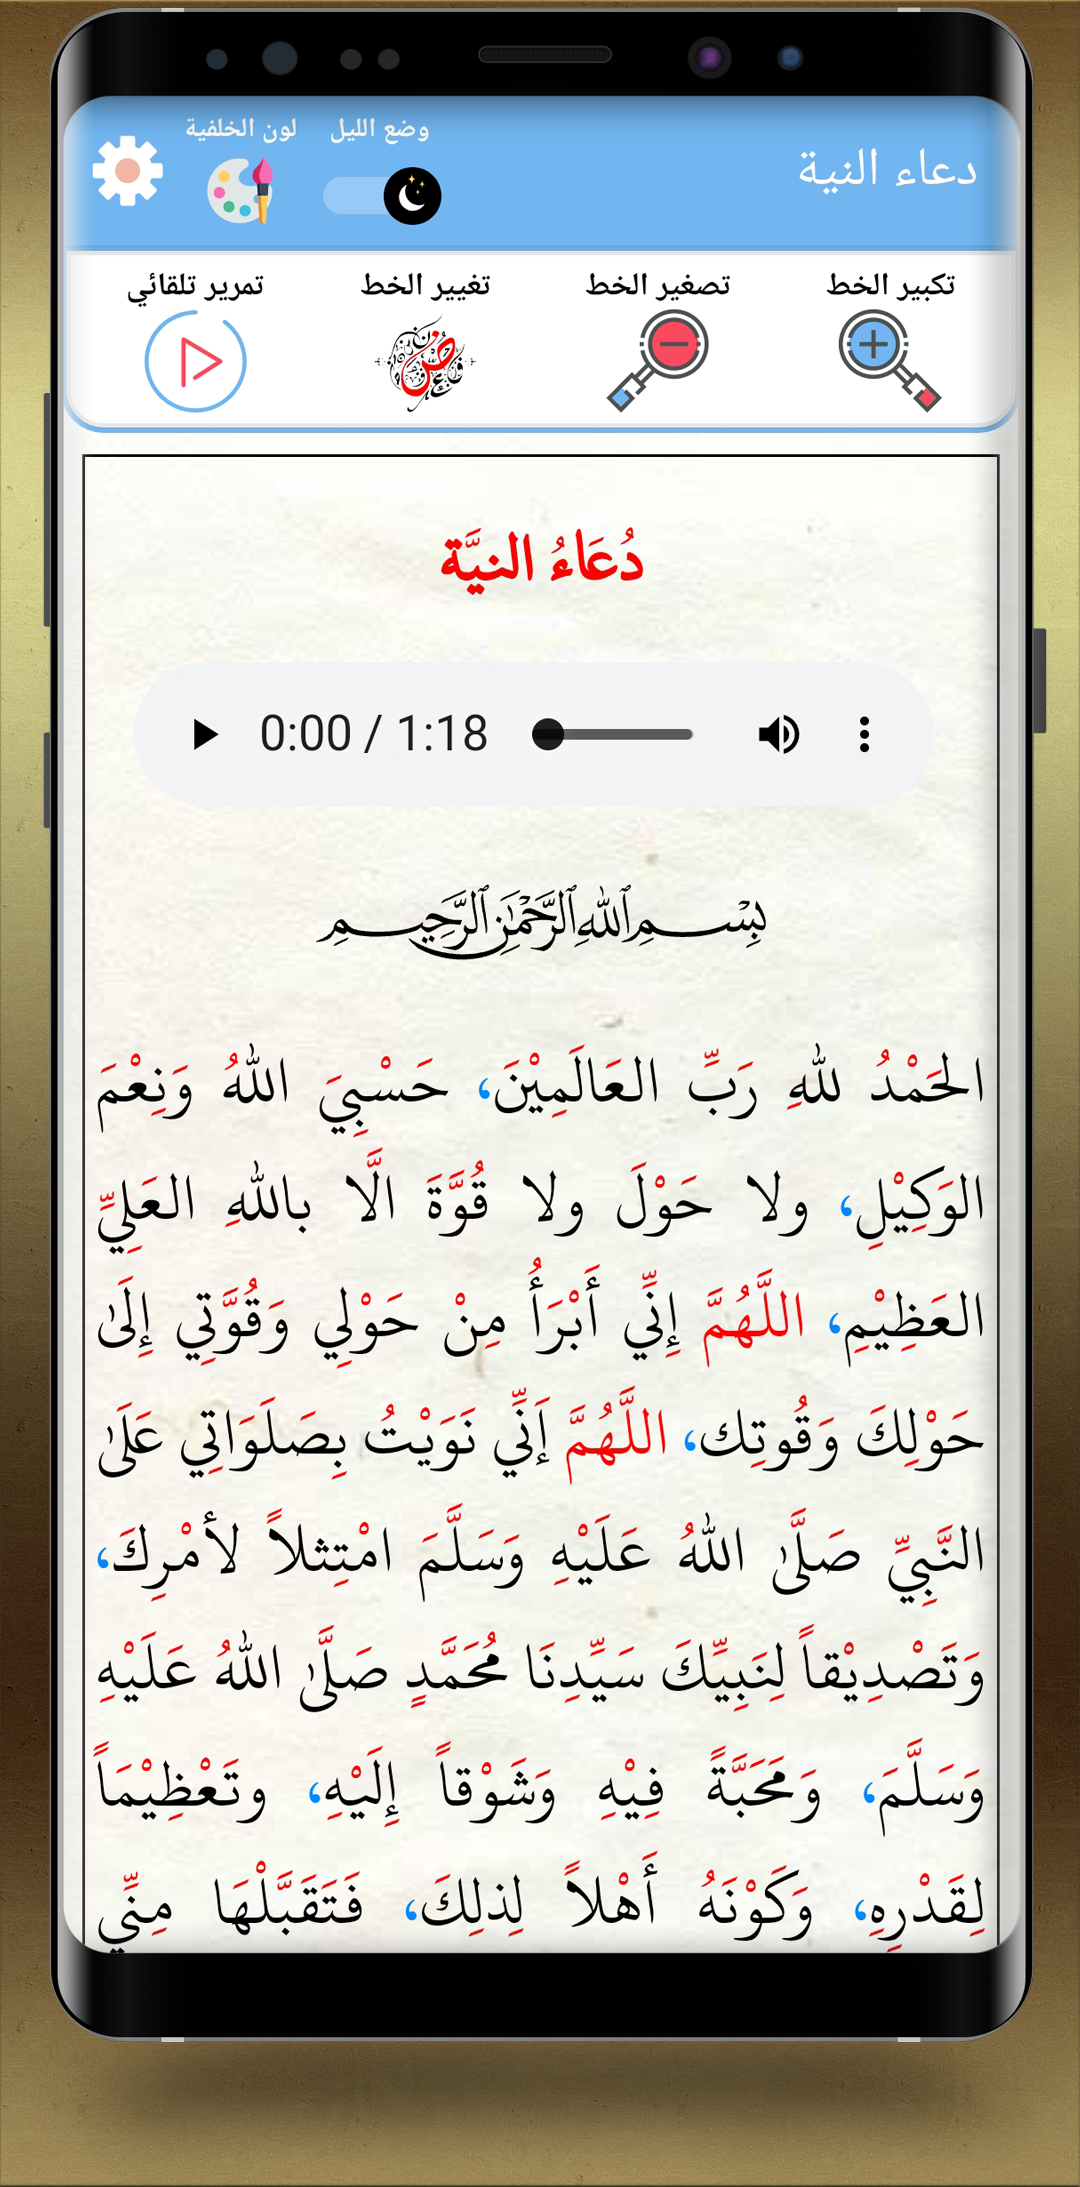 دعاء النية
وضع الليل
لون الخلفية
تكبير الخط
تصغير الخط
تغيير الخط
تمرير تلقائي
دُعَاءُ النيَّة
0:00 / 1:18
بِسْمِ ٱللَّهِ ٱلرَّحْمَٰنِ ٱلرَّحِيمِ
الحَمْدُ للهِ رَبِّ العَالَمِيْنَ، حَسْبِيَ اللهُ وَنِعْمَ
الوَكِيْلِ، ولا حَوْلَ ولا قُوَّةَ الَّا باللهِ العَلِيِّ
العَظِيْمِ، اللَّهُمَّ إِنِّي أَبْرَأُ مِنْ حَوْلِي وَقُوَّتِي إِلَىٰ
حَوْلِكَ وَقُوتِك، اللَّهُمَّ إَنِّي نَوَيْتُ بِصَلَوَاتِي عَلَىٰ
النَّبِيِّ صَلَّىٰ اللهُ عَلَيْهِ وَسَلَّمَ امْتِثلاً لأمْرِكَ،
وَتَصْدِيْقاً لِنَبِيِّكَ سَيِّدِنَا مُحَمَّدٍ صَلَّىٰ اللهُ عَلَيْهِ
وَسَلَّمَ، وَمَحَبَّةً فِيْهِ وَشَوْقاً إِلَيْهِ، وتَعْظِيْمَاً
لِقَدْرِهِ، وَكَوْنَهُ أَهْلاً لِذلِكَ، فَتَقَبَّلْهَا مِنِّي